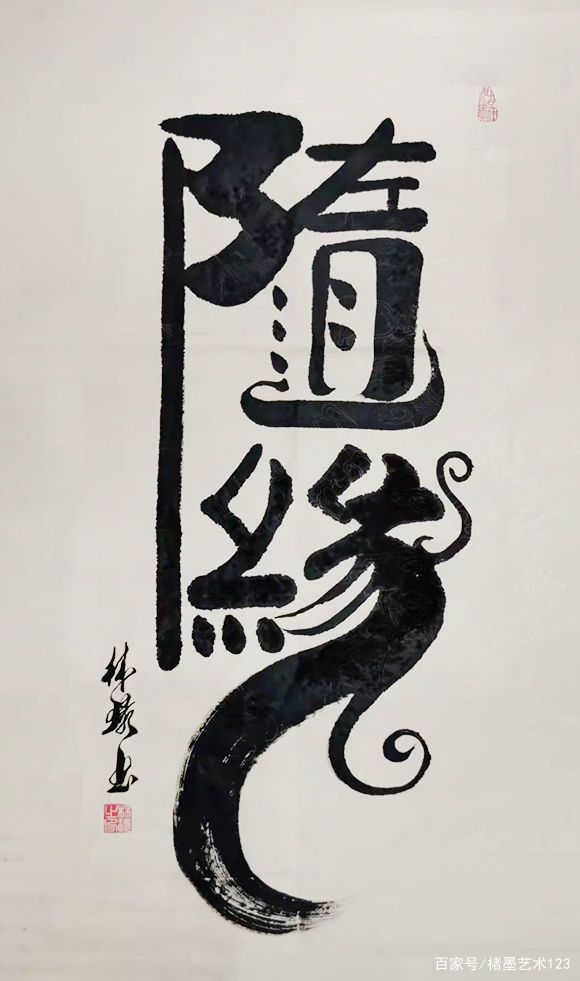 隨緣
林
书
百家号/楮墨艺术123